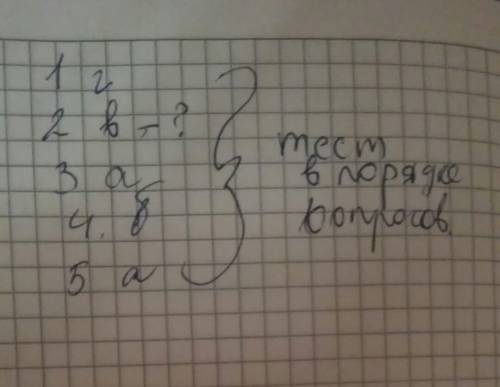 1 г
2 в - ?
3 а
4. б
5 а
тест
в порядке
вопросов.